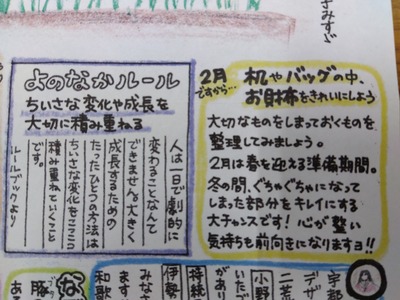 さみすゞ
よのなかルール
ちいさな変化や成長を
大切に積み重ねる
人は一日で劇的に
変わることなんて
できません。大きく
成長するための
たったひとつの方法は
ちいさな変化をコツコツ
積み重ねていくこと
です。
ルールブックより
2月
ですから…
机やバッグの中、
お財布をきれいにしよう
大切なものをしまっておくものを
整理してみましょう。
2月は春を迎える準備期間。
冬の間、ぐちゃぐちゃになって
しまった部分をキレイにする
大チャンスです!心が整い
気持ちも前向きになりますヨ!!
みなさ
ますす
和歌
伊勢
持続
があり
いたで
小野
二荒
デザ
宇都